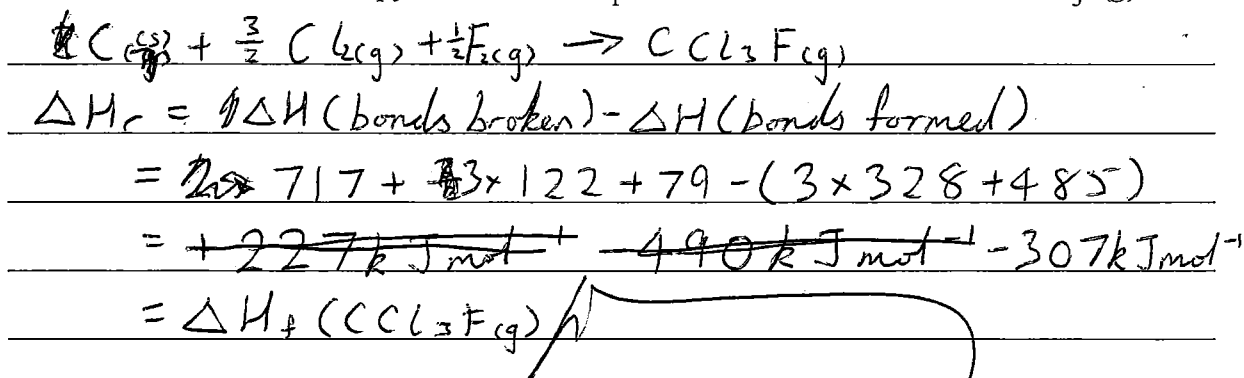 C(s) + 3/2 Cl2(g) + 1/2 F2(g) → CCl3F(g)
ΔHr = ΔH (bonds broken) - ΔH (bonds formed)
= 717 + 3 × 122 + 79 - (3 × 328 + 485)
= +227 kJ mol-1 -490 kJ mol-1 -307 kJ mol-1
= ΔHf (CCl3F(g))